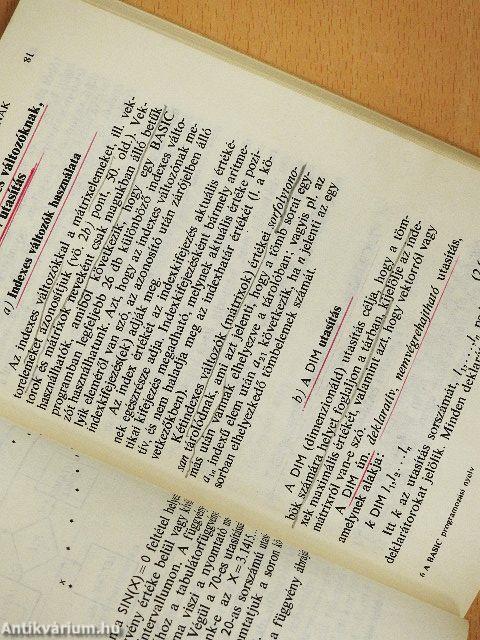 81
s változóknak,
utasítás
a) Indexes változók használata
Az indexes változókkal a mátrixelemeket ill. vek-
torelemeket azonosítjuk (vö. 2b) pont, 50. old.). Vek-
torok és mátrixok neveként csak magukban álló betűk
használhatók, amiből következik, hogy egy BASIC
programban legfeljebb 26 db különböző indexes válto-
zót használhatunk. Azt, hogy az indexes változónak me-
lyik eleméről van szó, az azonosító után zárójelben álló
indexkifejezés(ek) adják meg.
Az index értékét az indexkifejezés aktuális értéké-
nek egészrésze adja. Indexkifejezésként bármely aritme-
tikai kifejezés megadható, melynek aktuális értéke pozi-
tív, és nem haladja meg az indexhatár értékét (l. a kö-
vetkezőkben).
Kétindexes változók (mátrixok) értékei sorfolytono-
san tárolódnak, ami azt jelenti, hogy a tömb sorai egy-
más után vannak elhelyezve a tárolóban: vagyis pl. az
indexű elem után a következik, ha n jelenti az egy
sorban elhelyezkedő tömbelemek számát.
b) A DIM utasítás
A DIM (dimenzionáló) utasítás célja, hogy a töm-
bök számára helyet foglaljon a tárban, kijelölje az inde-
xek maximális értékét, valamint azt, hogy vektorról vagy
mátrixról van-e szó.
A DIM un. deklaratív, nemvégrehajtható utasítás,
amelynek alakja:
k DIM
Itt k az utasítás sorszámát,
deklarátorokat jelölik. Minden
6 A BASIC programozási nyelv
SIN(X)=0 feltétel
vény értéke belül vagy
intervallumon. A függvény
hoz a tabulátorfüggvény
ma viszi a nyomtató
Végül a 70-es utasítás
nk-e az X=3.1415...
20-as sorszámú
mtatjuk a soron
a függvény
Antikvárium.hu